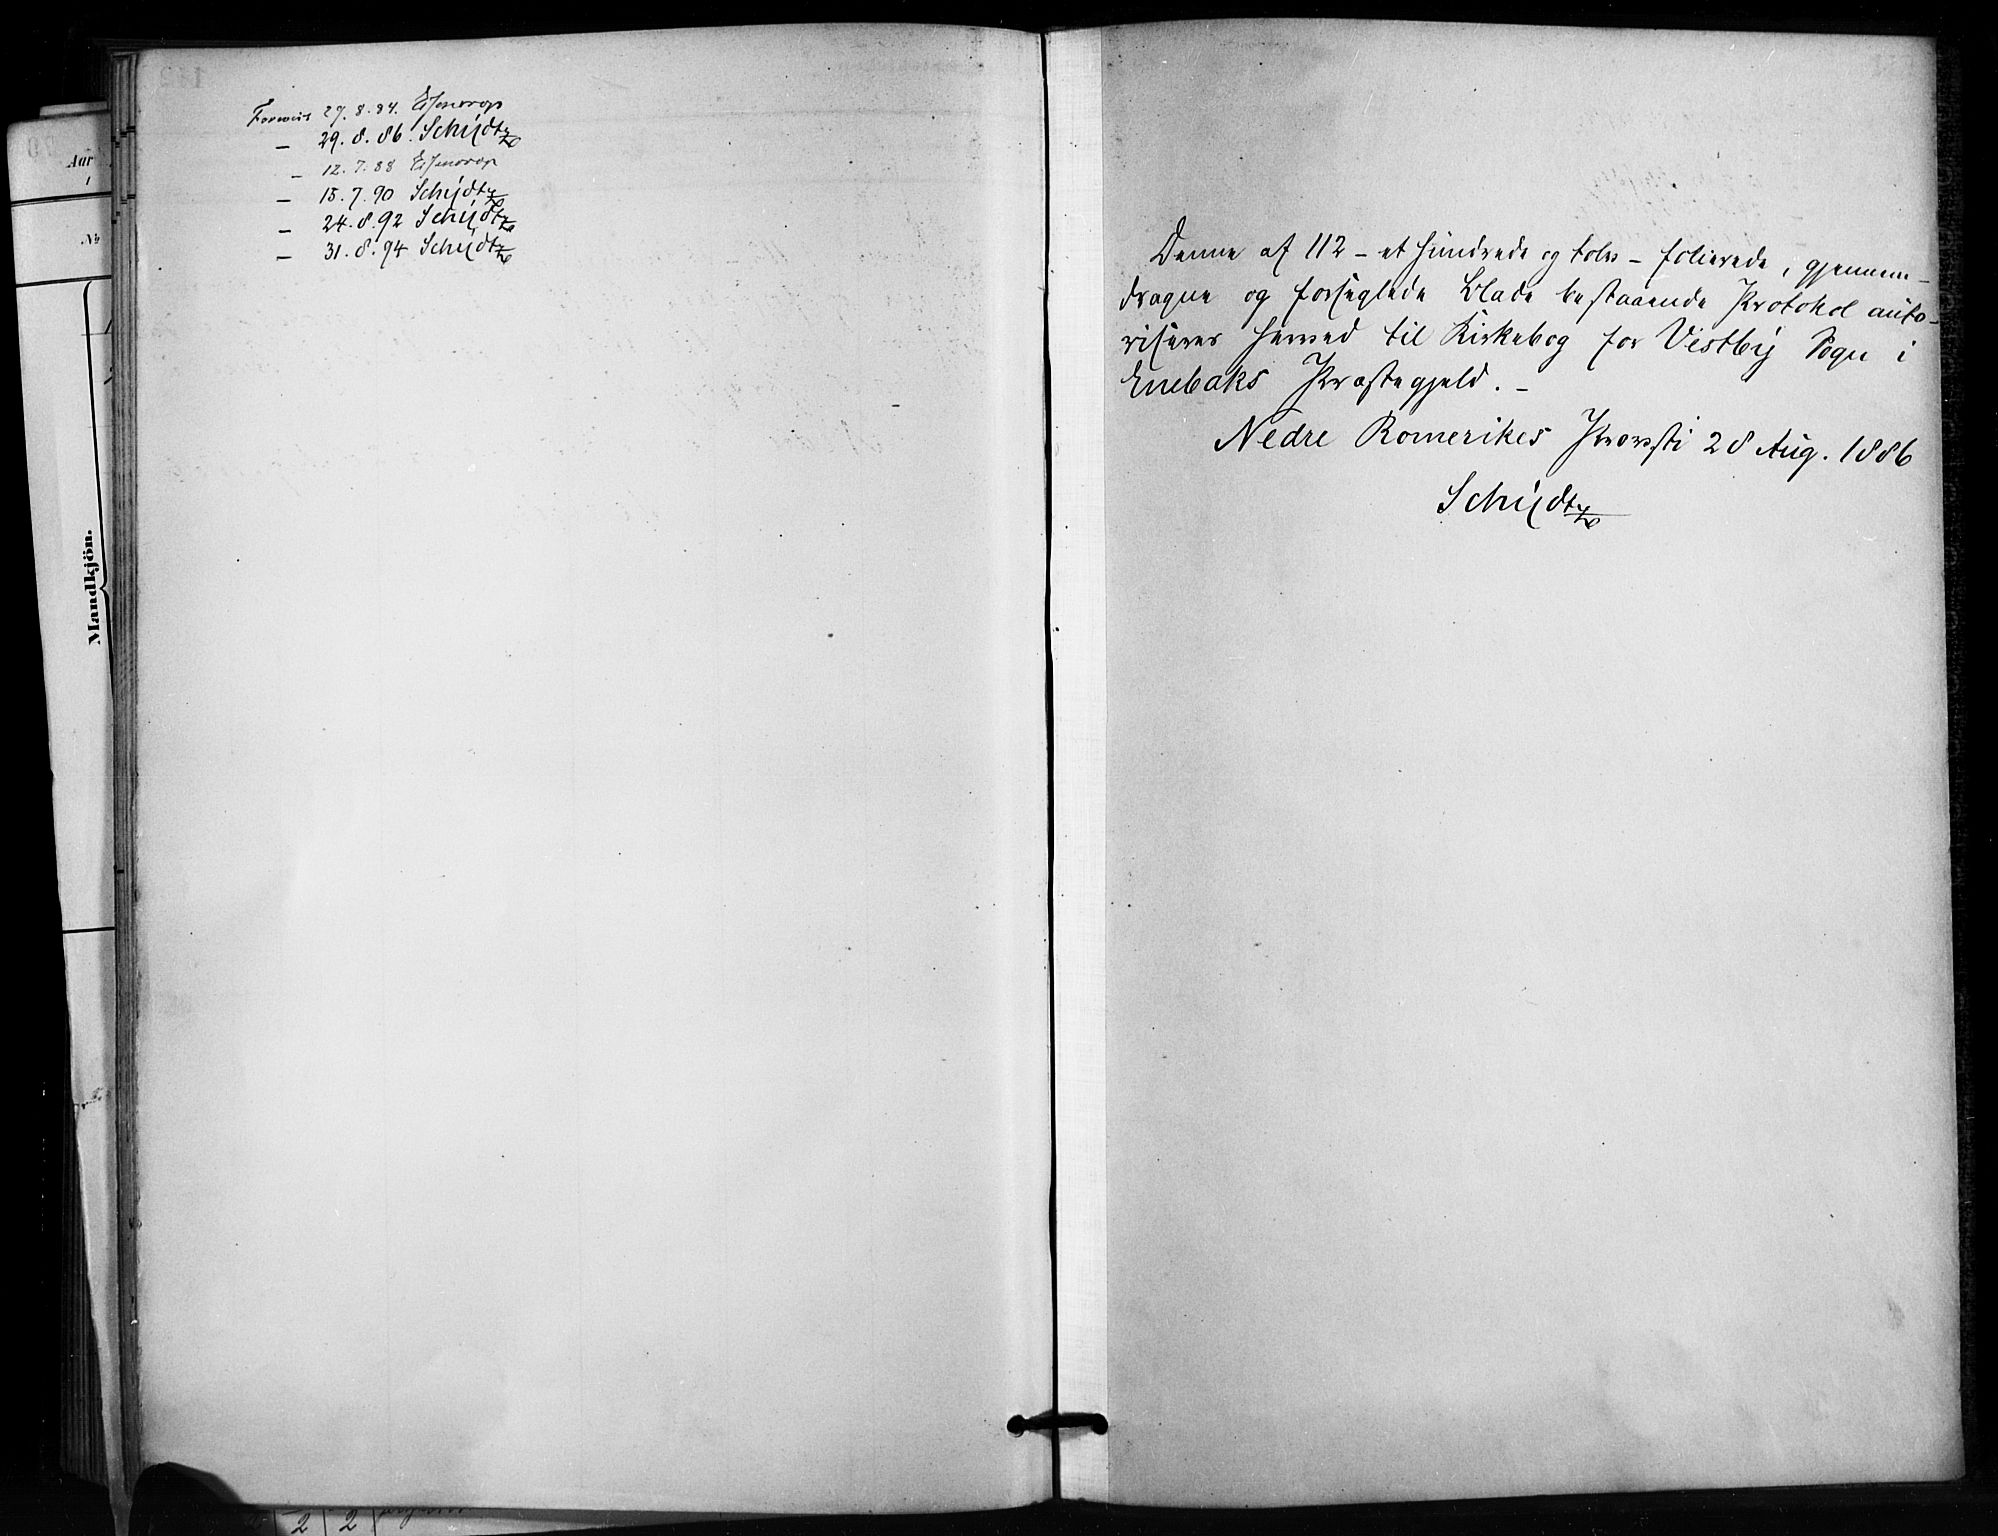 Aar
No
Mandkjön.
Forevist 27.8.84. Essendrop
— 29.8.86. Schijdtz
— 12.7.88 Essendrop
— 15.7.90 Schijdtz
— 24.8.92 Schijdtz
— 31.8.94 Schijdtz
2 2
Denne af 112 – et hundrede og tolv – folierede, gjennem-
dragne og forseglede Blade bestaaende Protokol auto-
riseres herved til Kirkebog for Vestby Sogn i
Enebaks Præstegjeld. –
Nedre Romerikes Provsti 28 Aug. 1886
Schijdtz